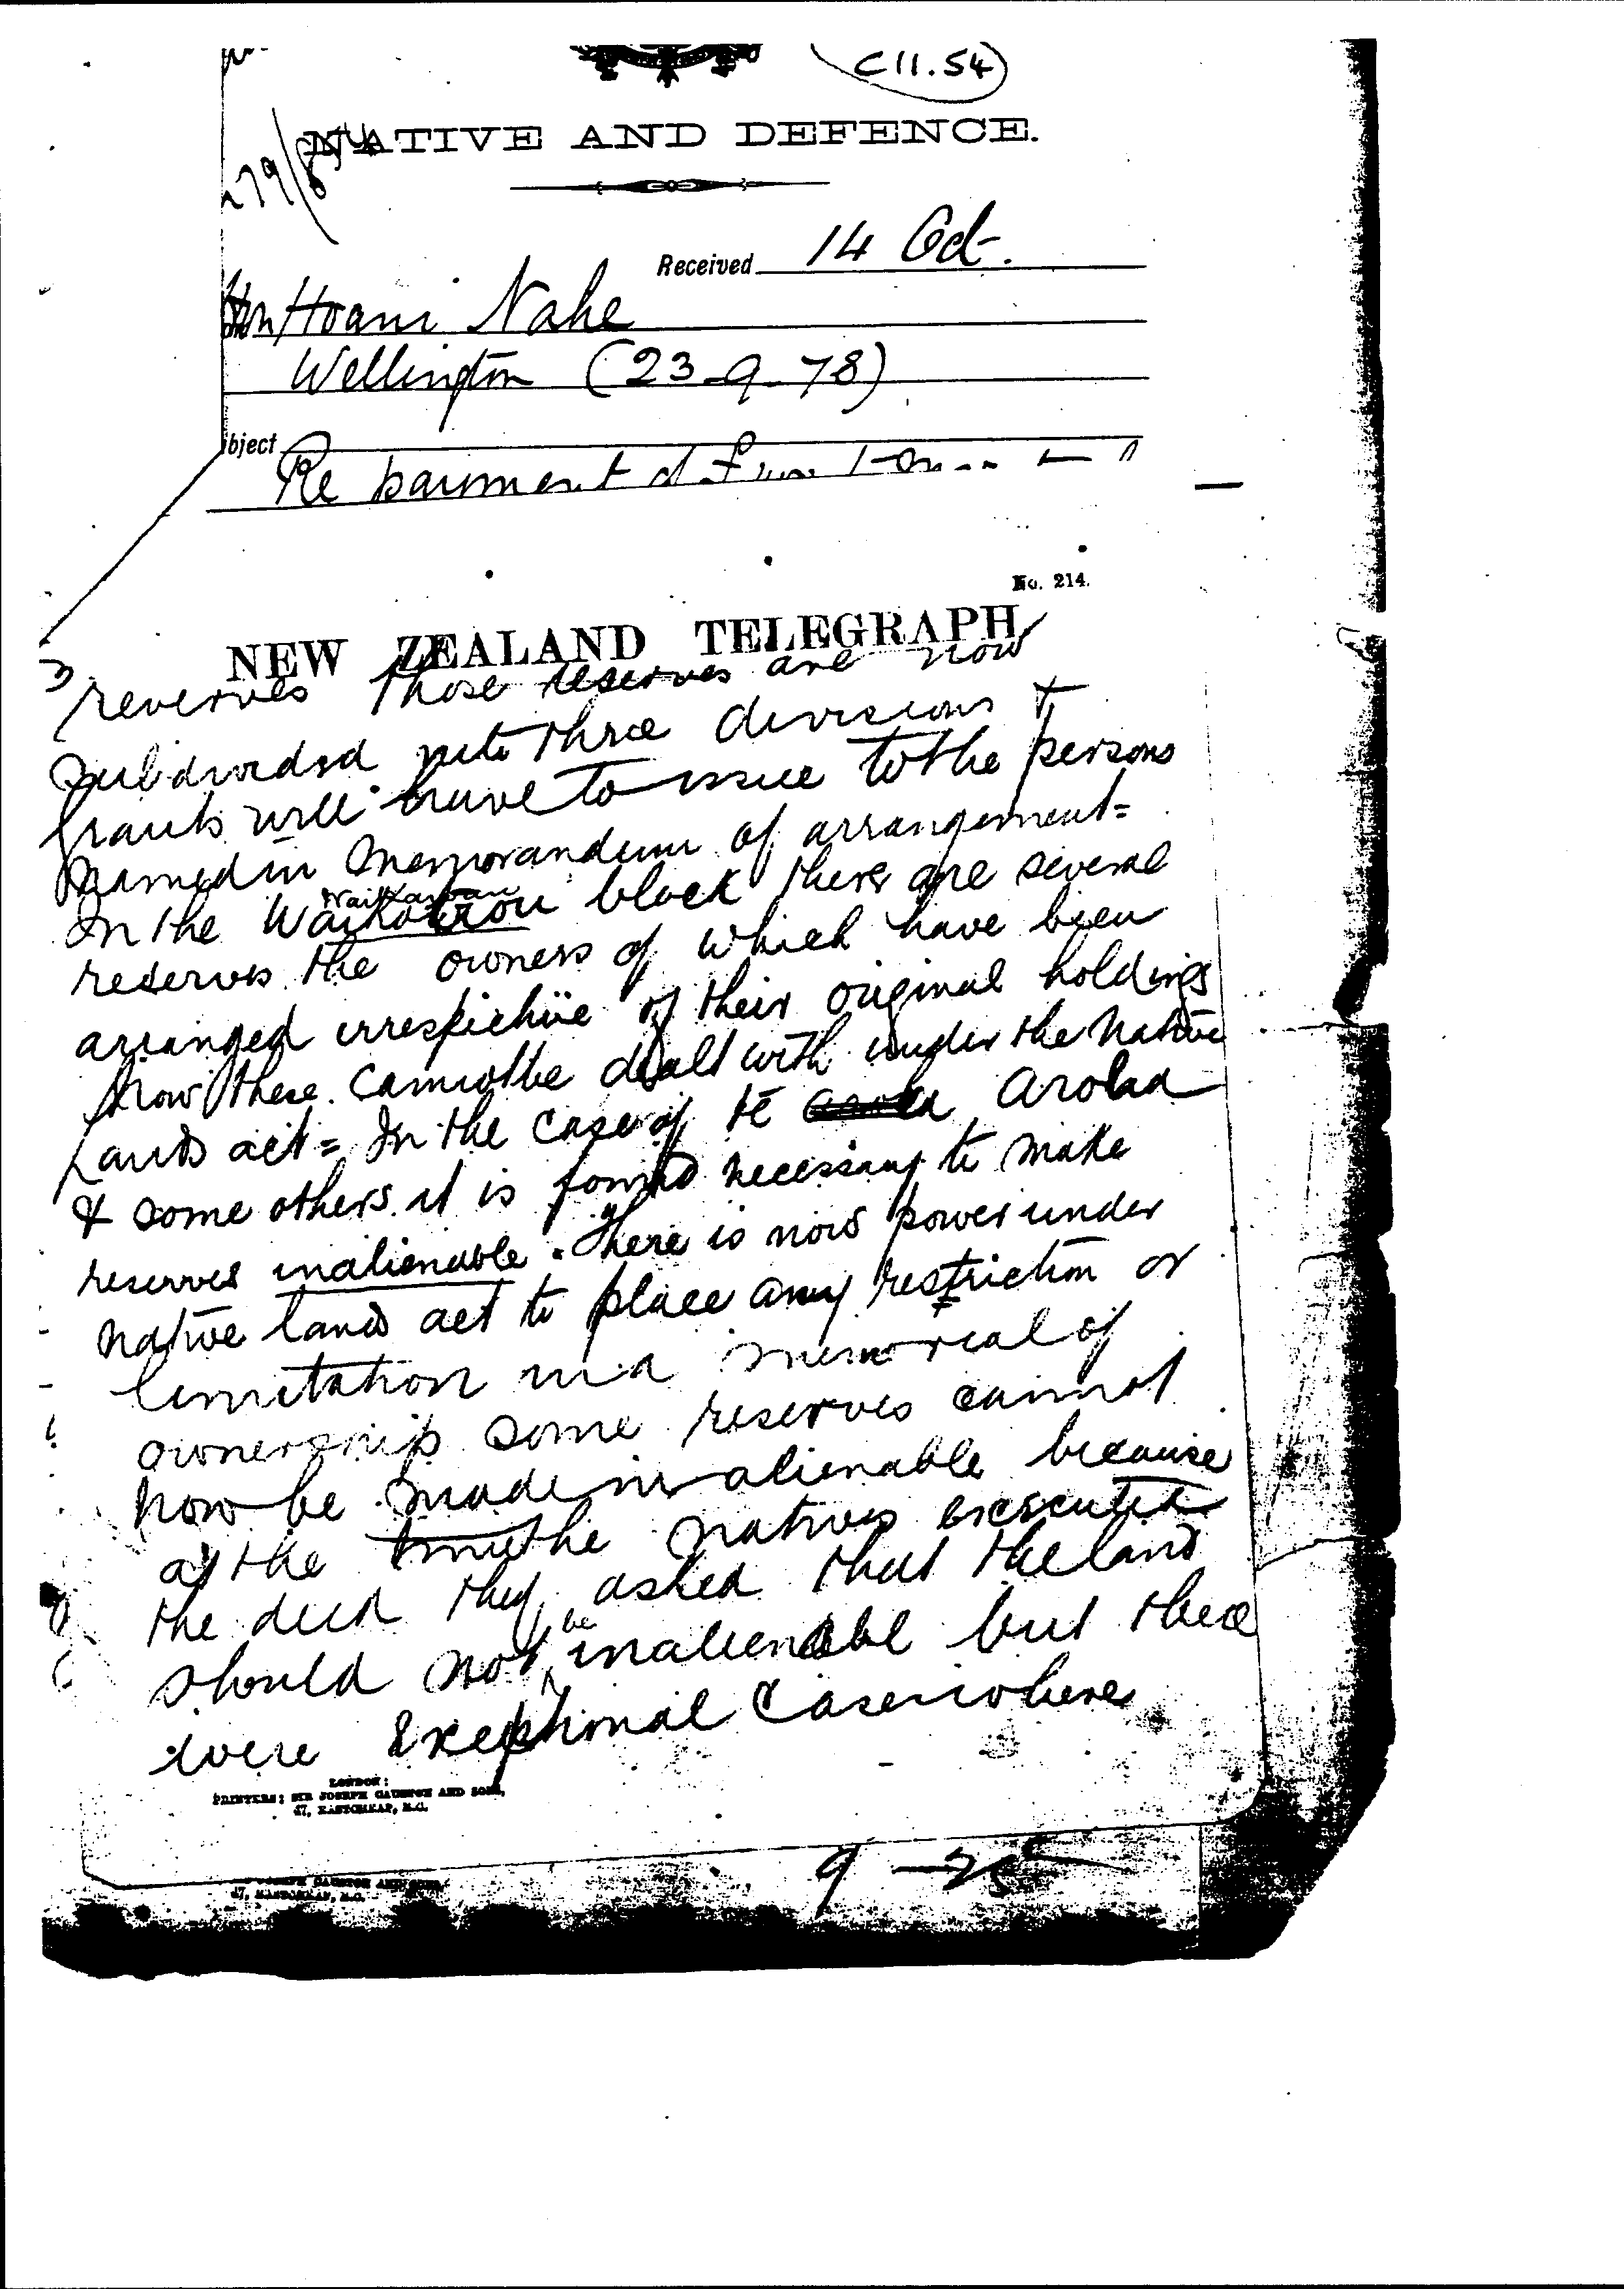 C11.54
NATIVE AND DEFENCE.
Received 14 Oct.
Hon Hoani Nahe
Wellington (23-9-78)
bject
Re payment of
No. 214.
NEW ZEALAND TELEGRAPH
reserves Those reserves are now
subdivided into three divisions &
grants will have to issue to the persons
named in memorandum of arrangement =
In the Waikawau block there are several
reserves the owners of which have been
arranged irrespective of their original holdings
now these cannot be dealt with under the Native
Lands act = In the case of te aroha aroha
& some others it is found necessary to make
reserves inalienable. There is now power under
native land act to place any restriction or
limitation in a memorial of
ownership some reserves cannot
now be made inalienable because
at the time the natives executed
the deed they asked that the land
should not be inalienabl but these
were exceptional cases where
LONDON:
PRINTERS: SIR JOSEPH CAUSTON AND SONS,
47, EASTCHEAP, E.C.
JOSEPH CAUSTON AND SONS,
47, EASTCHEAP, E.C.